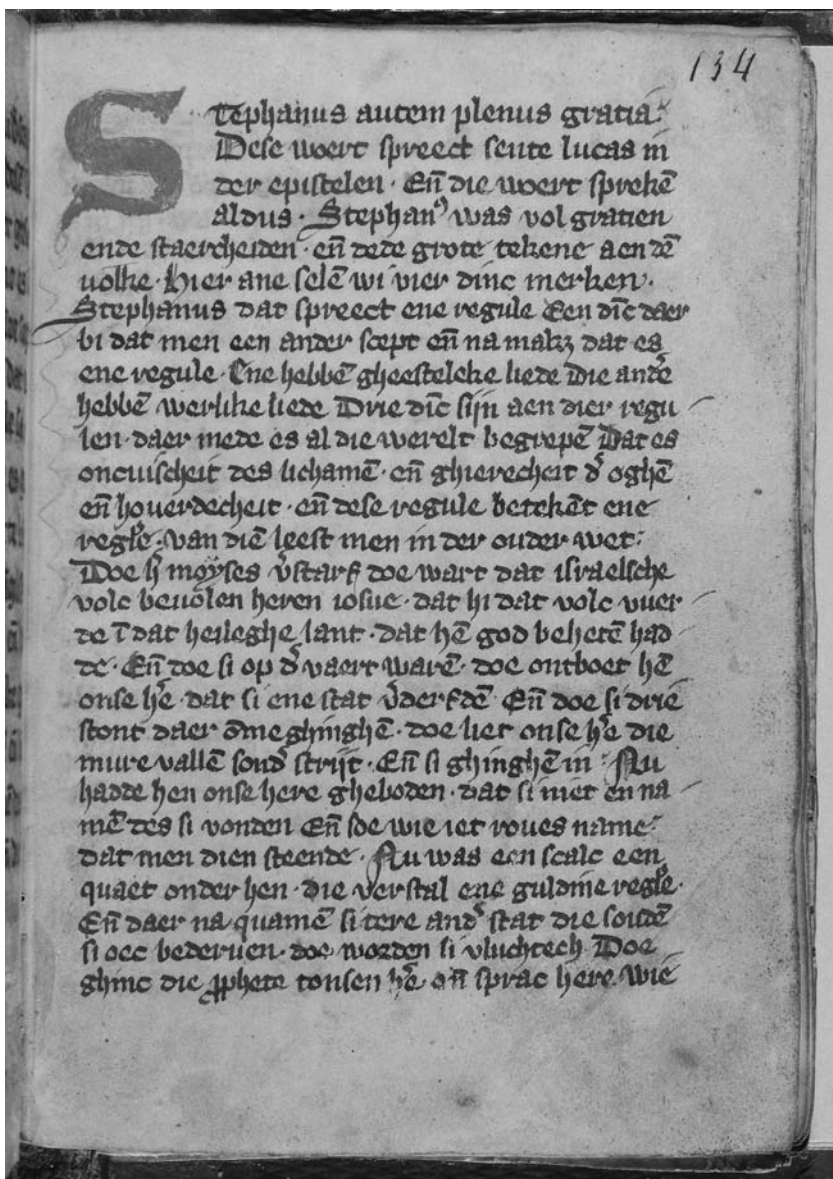 134
Stephanus autem plenus gratia:
Dese woert spreect sente lucas in
der epistelen · Eñ die woert sprekē
aldus · Stephanꝰ was vol gratien
ende staercheiden · eñ dede grote tekene aen dē
uolke · Hier ane selē wi vier dinc merken ·
Stephanus dat spreect ene regule Een dīc daer
bi dat men een ander scept eñ na makꝫ dat es
ene regule · Ene hebbē gheesteleke liede Die andͤe
hebbē werlike liede Drie dīc sijn aen dier regu
len · daer mede es al die werelt begrepē Dat es
oncuischeit des lichamē · eñ ghierecheit dͤ oghē
eñ houerdecheit · eñ dese regule betekēt ene
reglͤe · van diē leest men in der ouder wet:
Doe hͤ moyses v̄starf doe wart dat israelsche
volc beuolen heren iosue · dat hi dat volc vuer
de ī dat heileghe lant · dat hē god behetē had
de · Eñ doe si op dͤ vaert warē · doe ontboet hē
onse hͤe · dat si ene stat v̄derfdē · Eñ doe si drie
stont daer ōme ghinghē · doe liet onse hͤe die
mure vallē sondͤ strijt · Eñ si ghinghē in : Nu
hadde hen onse here gheboden · dat si niet en na
mē des si vonden Eñ soe wie iet roues name:
dat men dien steende · Nu was een scalc een
quaet onder hen · die verstal ene guldine reglͤe ·
Eñ daer na quamē si tere andͤ stat die soudē
si oec bederuen · doe worden si vluchtech Doe
ghinc die ꝓphete tonsen hͤe · oñ sprac here · wie